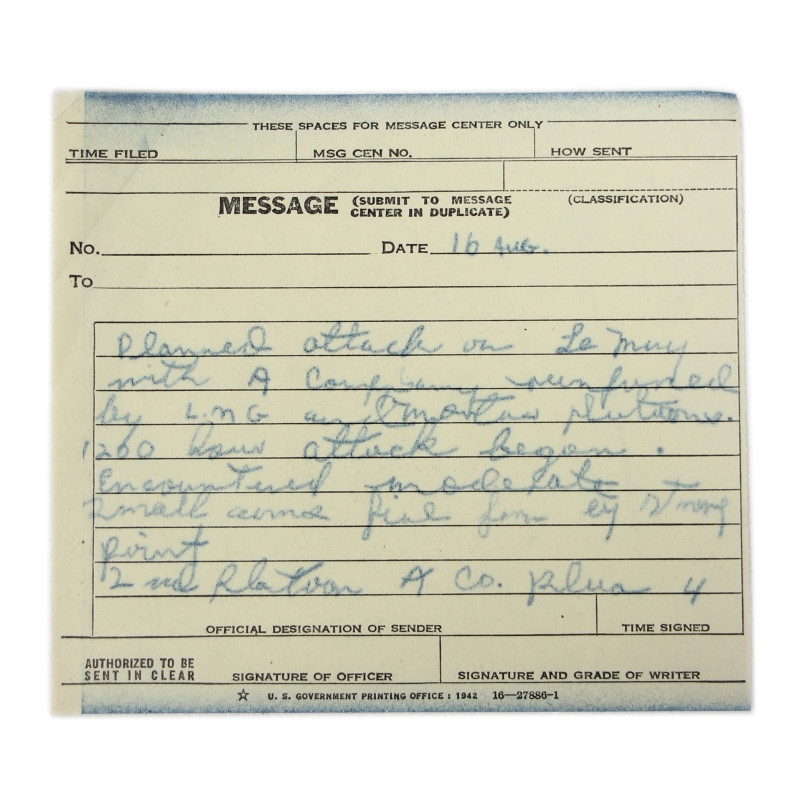 THESE SPACES FOR MESSAGE CENTER ONLY
TIME FILED MSG CEN NO. HOW SENT
MESSAGE (SUBMIT TO MESSAGE CENTER IN DUPLICATE) (CLASSIFICATION)
No. DATE 16 AUG.
To
Planned attack on Le Muy
with A Company reinforced
by L.M.G and Mortar platoons.
1200 hour attack began.
Encountered moderate
small arms fire from ey strong
point
2nd Platoon A Co. plus 4
OFFICIAL DESIGNATION OF SENDER TIME SIGNED
AUTHORIZED TO BE SENT IN CLEAR SIGNATURE OF OFFICER SIGNATURE AND GRADE OF WRITER
☆ U. S. GOVERNMENT PRINTING OFFICE : 1942 16—27886-1